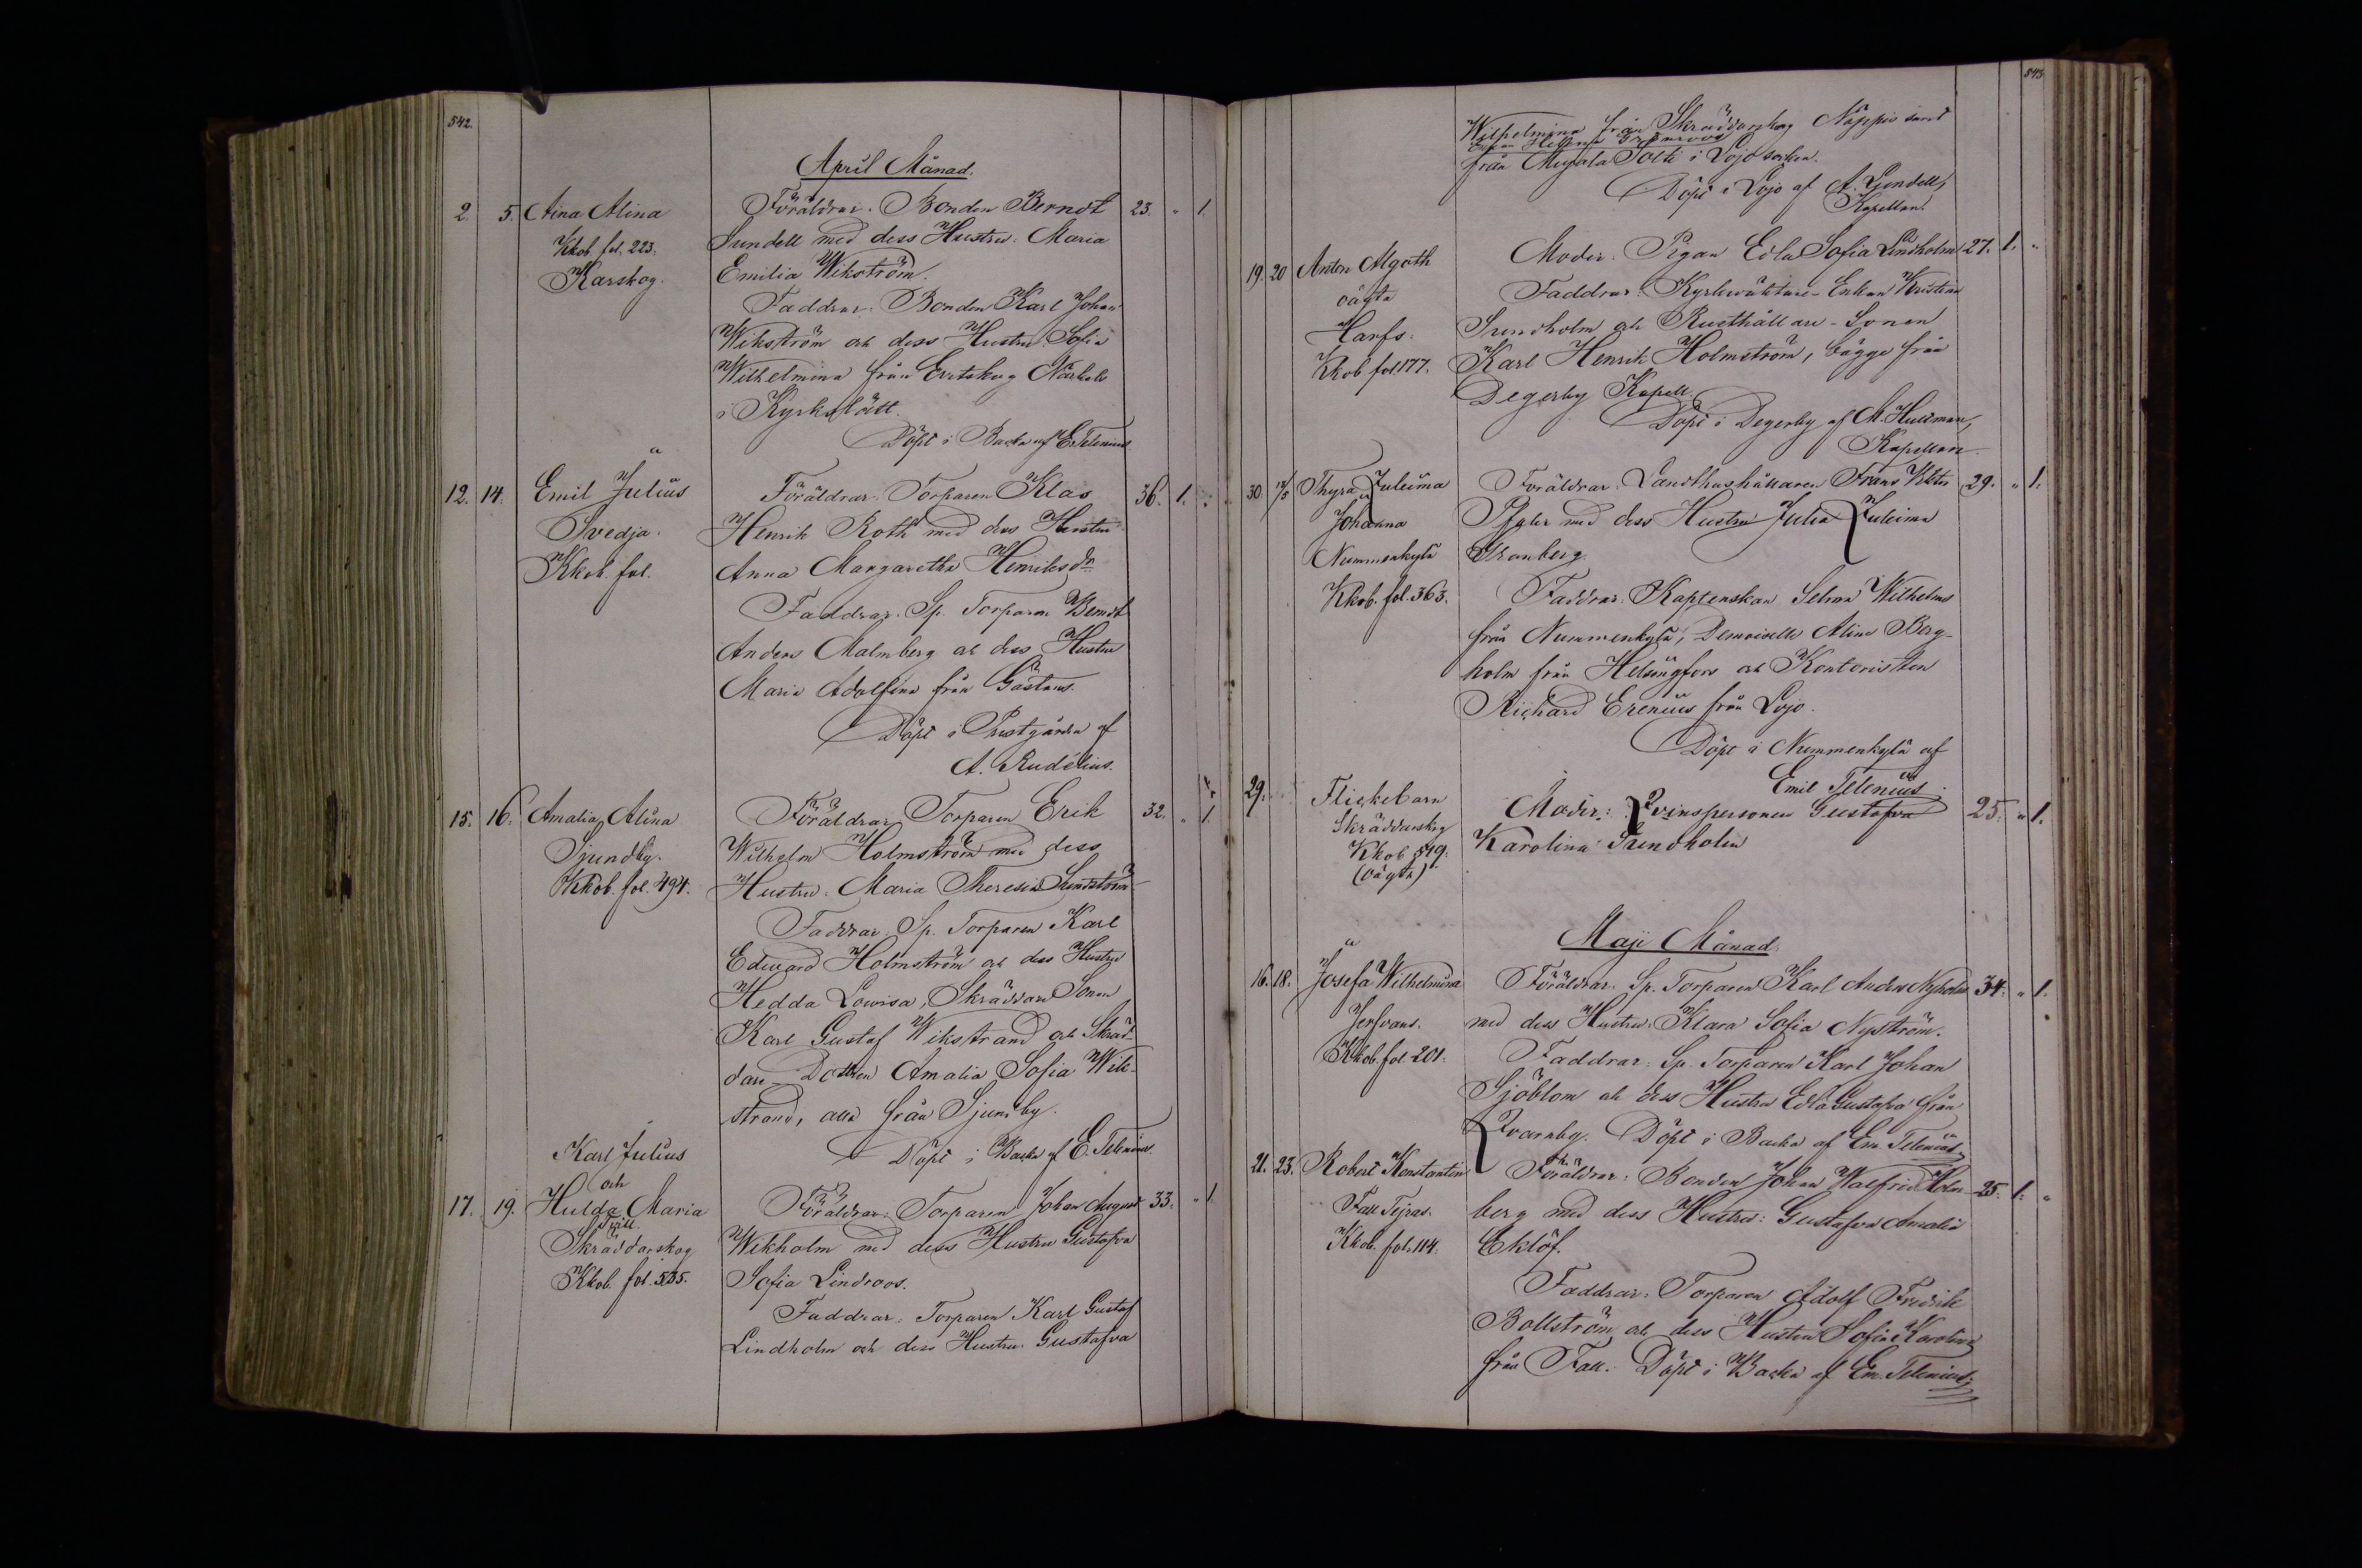 542.
April Månad.
2. 5. Aina Alina
Kkob. fol. 223.
Karskog.
Föräldrar. Bonden Berndt 23. " 1.
Sundell med dess Hustru: Maria
Emilia Wikström.
Faddrar: Bonden Karl Johan
Wikström och dess Hustru Sofia
Wilhelmina från Evitskog
i Kyrkslätt.
Döpt i Backa af E. Telenius
12. 14. Emil Julius
Svedja.
Kkob. fol.
Föräldrar: Torparen Klas 36. 1. "
Henrik Roth med dess Hustru
Anna Margaretha Henriksdr
Faddrar. Sp. Torparen Berndt
Anders Malmberg och dess Hustru
Maria Adolfina från Gästans.
Döpt i Prestgården af
A. Rudelius.
15. 16. Amalia Alina
Sjundby.
Kkob. fol. 494.
Föräldrar, Torparen Erik 32. " 1.
Wilhelm Holmström med dess
Hustru. Maria Theresia Sundström
Faddrar. Sp. Torparen Karl
Edward Holmström och dess Hustru
Hedda Lovisa, Skräddare Sonen
Karl Gustaf Wikstrand och Skräd-
dare Dottren Amalia Sofia Wik-
strand, alla från Sjundby.
Döpt i Backa af E. Telenius.
Karl Julius
och
17. 19. Hulda Maria
Tvill.
Skräddarskog
Kkob. fol. 535.
Föräldrar: Torparen Johan August 33. " 1.
Wikholm med dess Hustru Gustafva
Sofia Lindroos.
Faddrar: Torparen Karl Gustaf
Lindholm och dess Hustru Gustafva
543
Wilhelmina från Skräddarskog Näppis samt
från Mujola i Lojo socken.
Döpt i Lojo af A. Lindell,
Kapellan.
19. 20 Anton Algoth
oägta
Harfs.
Kkob fol 177.
Moder. Pigan Edla Sofia Lindholm 27. 1. "
Faddrar: Kyrkoväktare-Enkan Kristina
Sundholm och Rusthållare-Sonen
Karl Henrik Holmström, bägge från
Degerby Kapell.
Döpt i Degerby af M. Hultman,
Kapellan.
30 12/5 Thyra Zuleima
Johanna
Nummenkylä
Kkob. fol. 363.
Föräldrar. Landthushållaren Frans Viktor 29. " 1.
Pfaler med dess Hustru Julia Zuleima
Stranberg.
Faddrar. Kaptenskan Selma Wilhelms
från Nummenkylä, Demoiselle Alina Berg-
holm från Helsingfors och Kontoristen
Richard Erenius från Lojo.
Döpt i Nummenkylä af
Emil Telenius.
29. Flickebarn
Skräddarskog
Kkob 549.
(oägta)
Moder: Qvinspersonen Gustafva 25. " 1.
Karolina Sundholm
Maji Månad.
16. 18. Josefa Wilhelmina
Jerfvans.
Kkob. fol. 201.
Föräldrar. Sp. Torparen Karl Anders Nyholm 34. " 1.
med dess Hustru: Klara Sofia Nyström.
Faddrar: Sp. Torparen Karl Johan
Sjöblom och dess Hustru Edla Gustafva från
Qvarnby. Döpt i Backa af Em. Telenius
21. 23. Robert Konstantin
Fall Tejras.
Kkob. fol. 114.
Föräldrar: Bonden Johan Walfrid Holm- 25. 1. "
berg med dess Hustru: Gustafva Amalia
Eklöf.
Faddrar: Torparen Adolf Fredrik
Bollström och dess Hustru Sofia Karolina
från Fall. Döpt i Backa af Em. Telenius